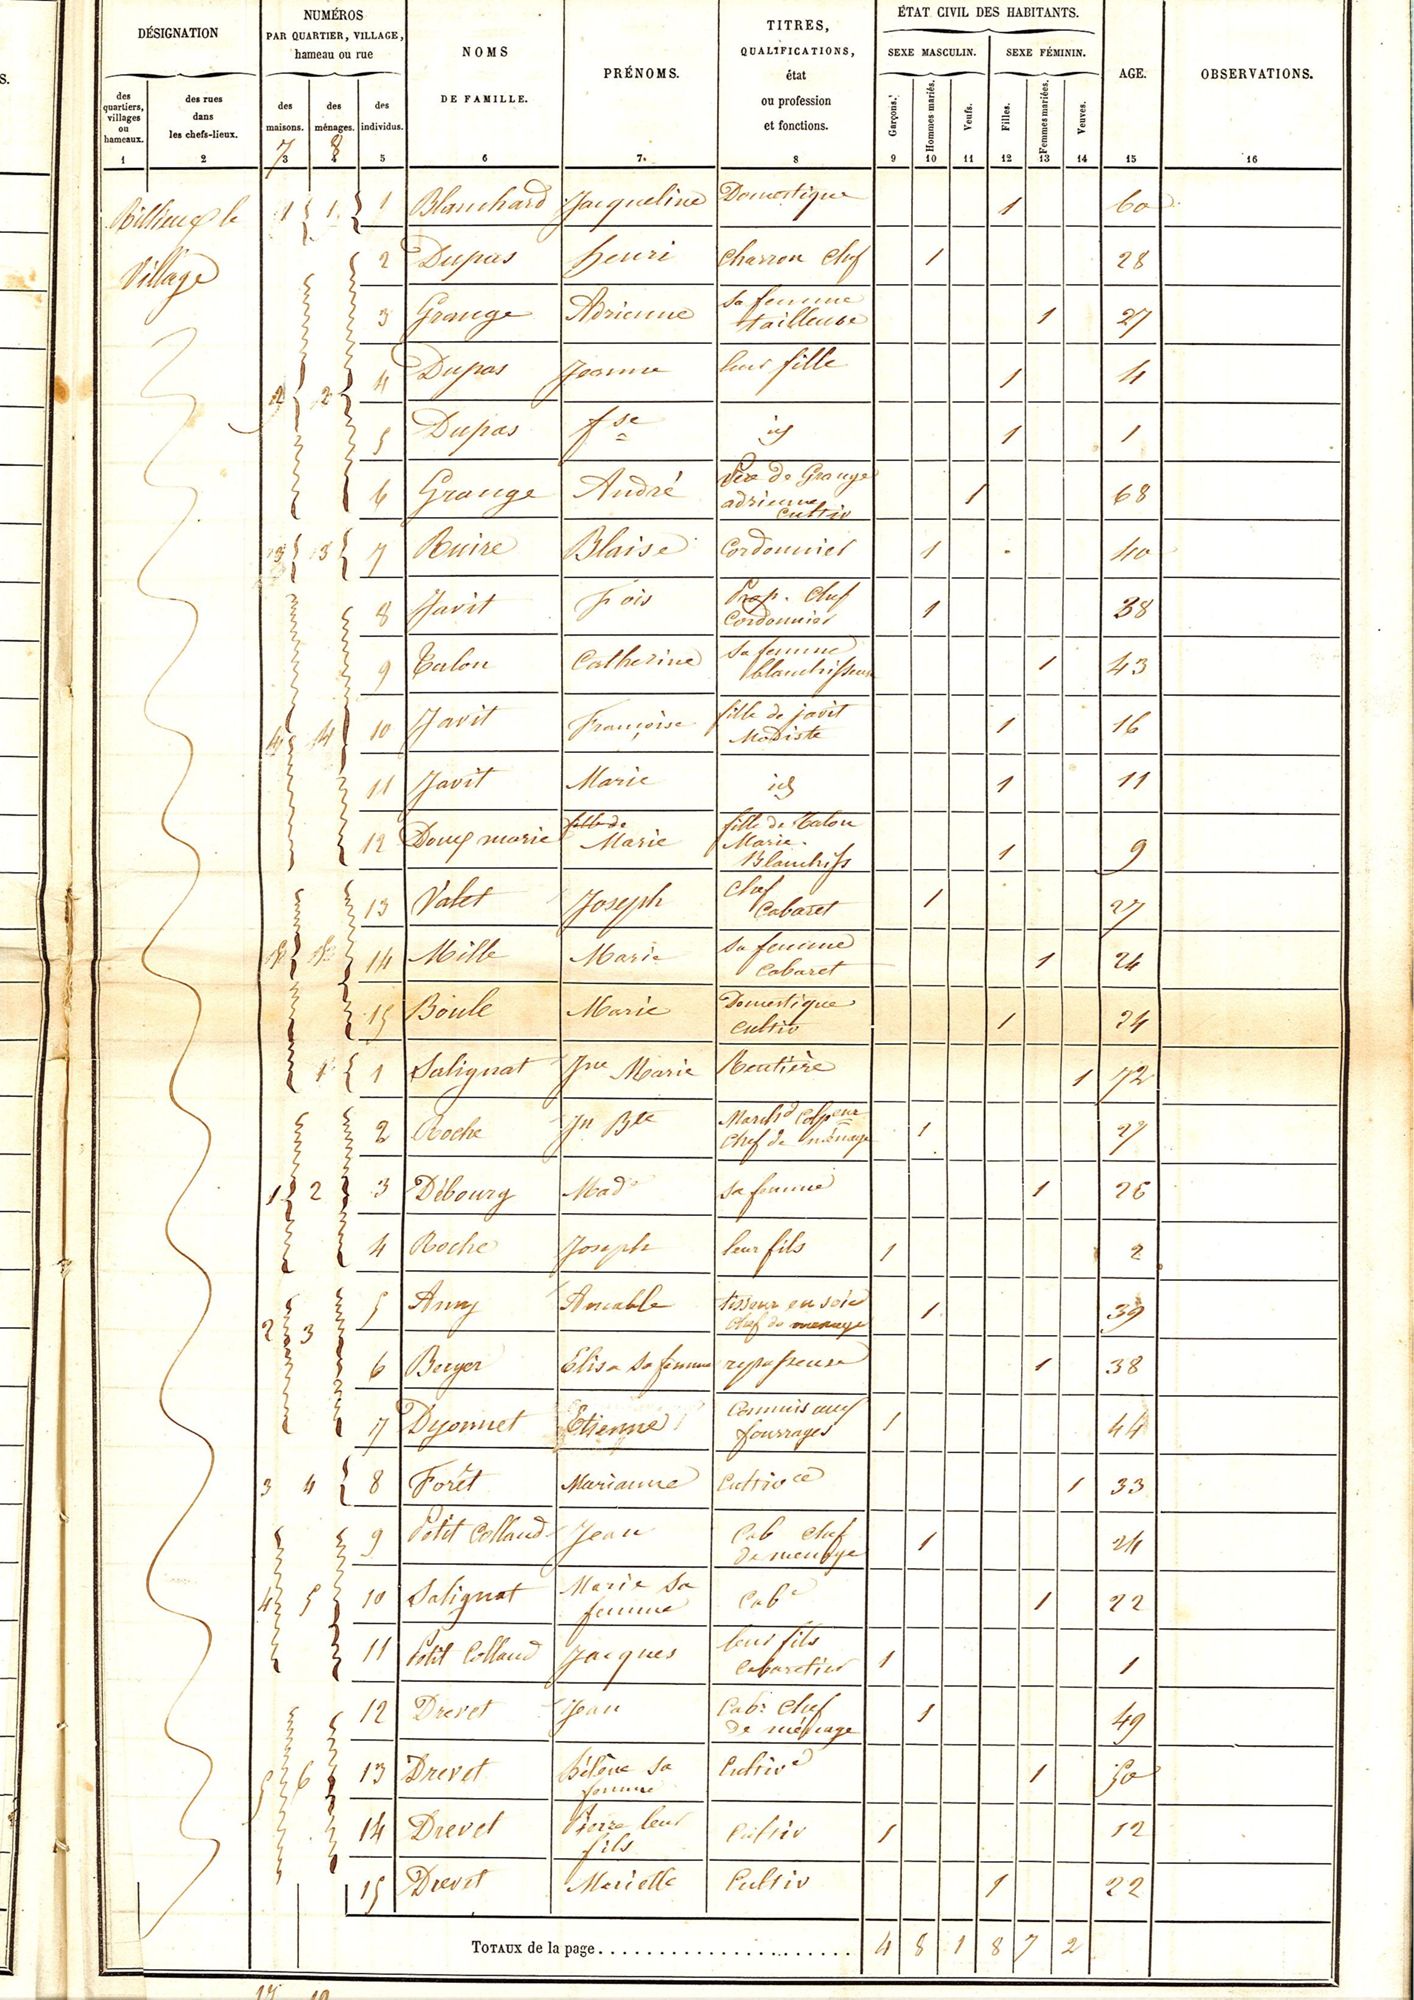 S.
DÉSIGNATION
NUMÉROS
PAR QUARTIER, VILLAGE,
hameau ou rue
NOMS
DE FAMILLE.
PRÉNOMS.
TITRES,
QUALIFICATIONS,
état
ou profession
et fonctions.
ÉTAT CIVIL DES HABITANTS.
SEXE MASCULIN. SEXE FÉMININ.
AGE.
OBSERVATIONS.
des
quartiers,
villages
ou
hameaux.
des rues
dans
les chefs-lieux.
des
maisons.
des
ménages.
des
individus.
Garçons.
Hommes mariés.
Veufs.
Filles.
Femmes mariées.
Veuves.
7 8
1 2 3 4 5 6 7. 8 9 10 11 12 13 14 15 16
Rillieux le
Village
1 1 1 Blanchard Jacqueline Domestique 1 60
2 Dupas henri charron chef 1 28
3 Grange Adrienne sa femme
tailleuse 1 27
2 2 4 Dupas Jeanne leur fille 1 4
5 Dupas fse id 1 1
6 Grange André Père de Grange
adrienne
cultiv 1 68
3 3 7 Ruire Blaise Cordonnier 1 40
8 Javit fois Prop. chef
Cordonnier 1 38
9 Talon Catherine sa femme
blanchisseuse 1 43
4 4 10 Javit Françoise fille de javit
Modiste 1 16
11 Javit Marie id 1 11
12 Doux marie fille de
Marie fille de Talon
Marie
Blanchiss 1 9
13 Valet Joseph chef
Cabaret 1 27
14 Mille Marie sa femme
Cabaret 1 24
15 Boule Marie Domestique
Cultiv 1 24
1 1 Salignat Jne Marie Rentière 1 72
2 Roche Jn Bte Marchd Colpeur
chef de ménage 1 27
1 2 3 Débourg Made sa femme 1 26
4 Roche Joseph leur fils 1 2
2 3 5 Anny Amable tisseur en soie
chef de menage 1 39
6 Berger Elisa sa femme repasseuse 1 38
7 Dyonnet Etienne Commis aux
fourrages 1 44
3 4 8 Forêt Marianne Cultivce 1 33
9 Petit Colland Jean Cab chef
de menage 1 24
4 5 10 Salignat Marie sa
femme Cabe 1 22
11 Petit Colland Jacques leur fils
Cabaretier 1 1
12 Drevet Jean Cabr chef
de ménage 1 49
5 6 13 Drevet hélène sa
femme Cultive 1 50
14 Drevet Pierre leur
fils Cultiv 1 12
15 Drevet Mariette Cultiv 1 22
TOTAUX de la page 4 8 1 8 7 2